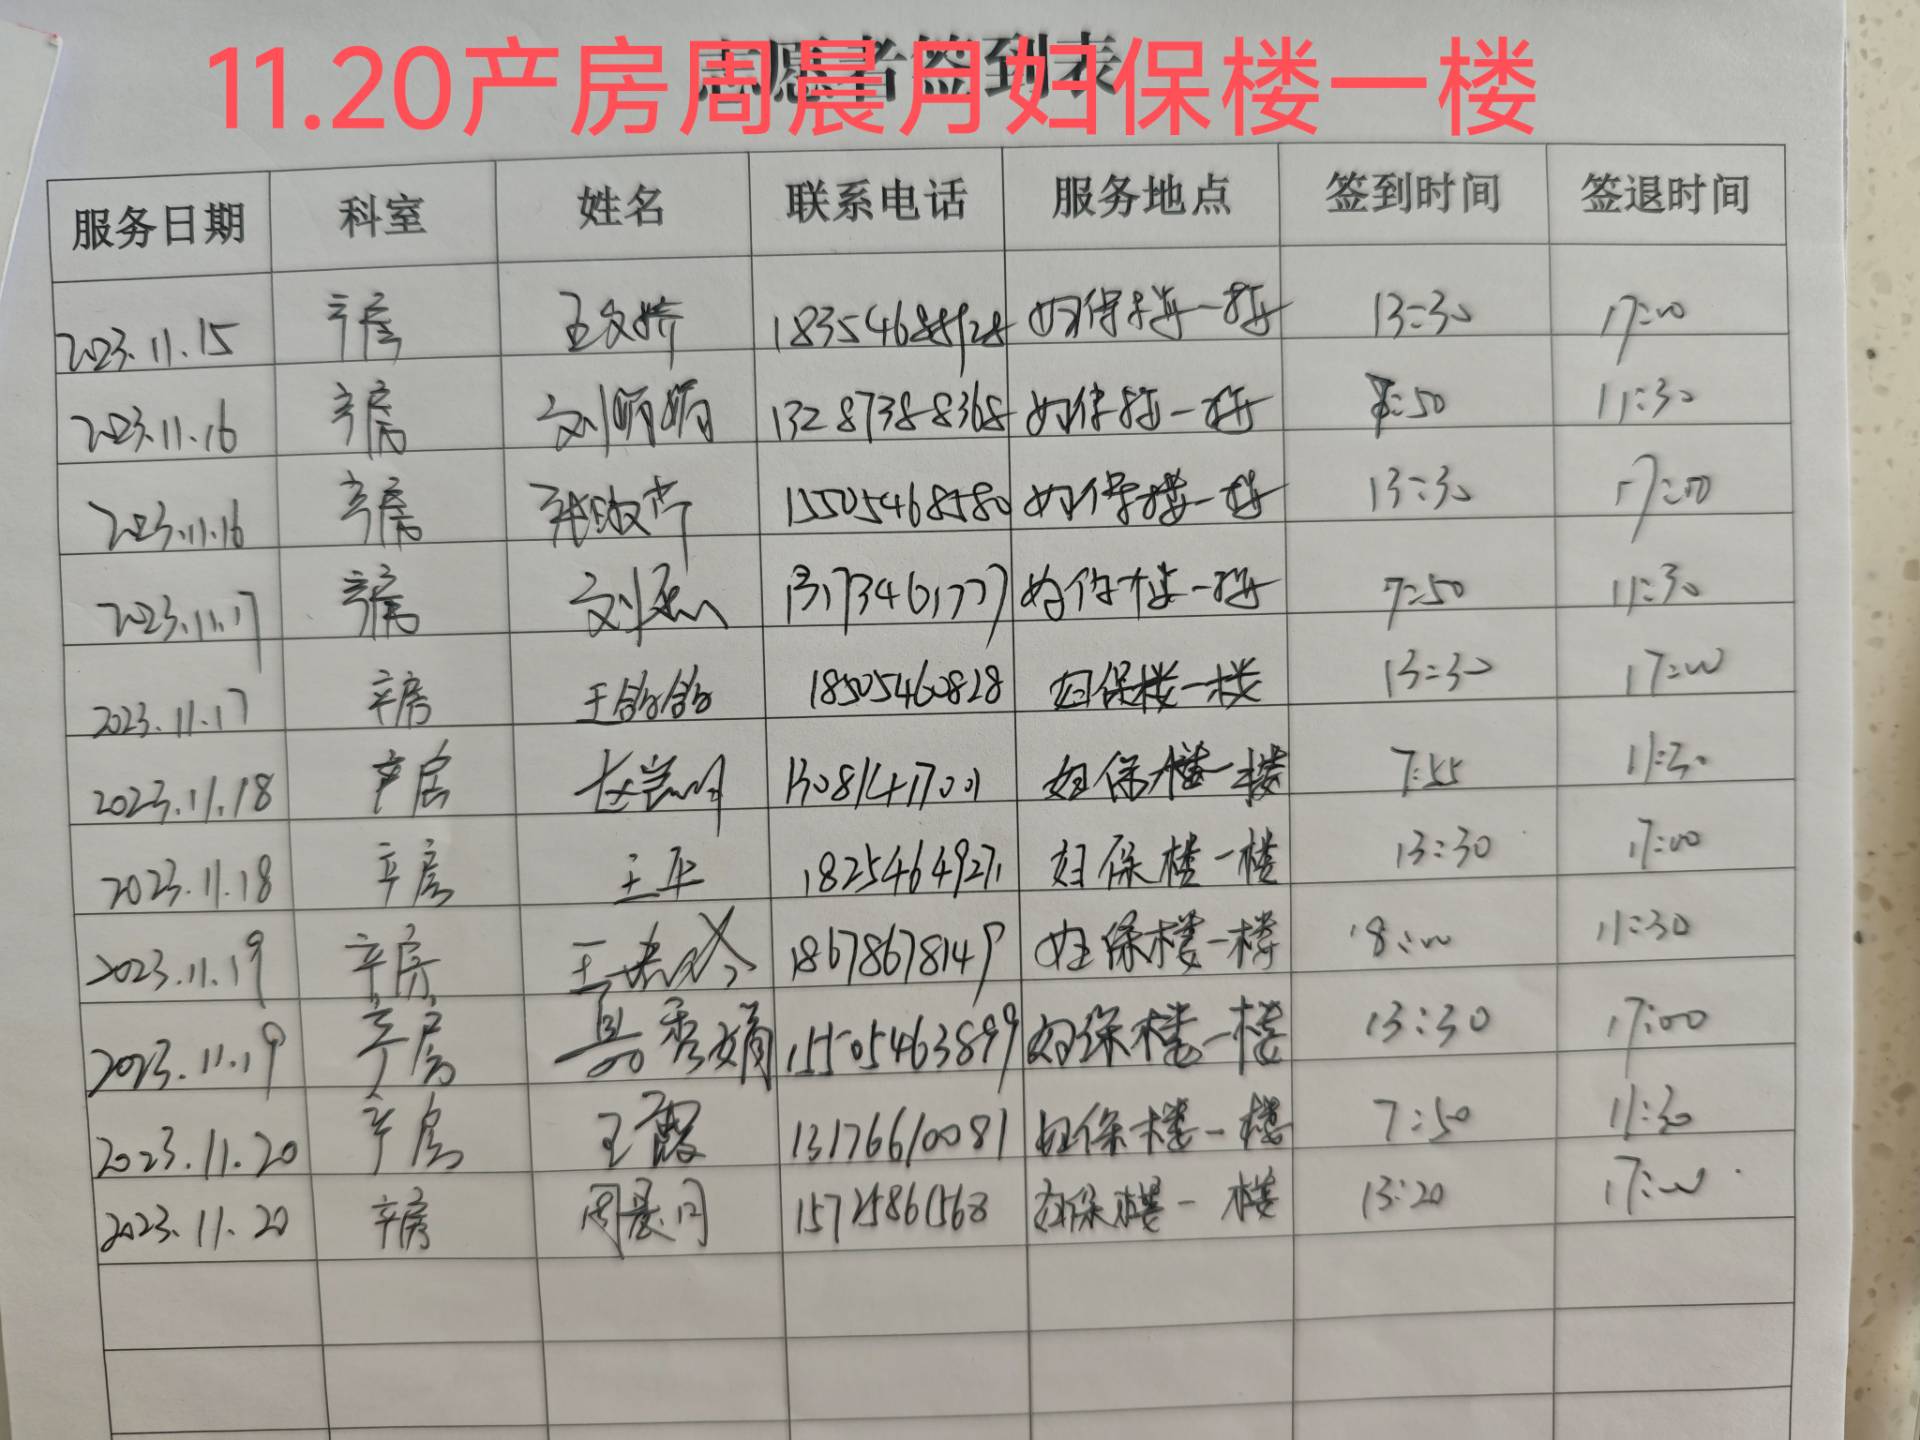 11.20产房周晨月妇保楼一楼
志愿者签到表
服务日期 科室 姓名 联系电话 服务地点 签到时间 签退时间
2023.11.15 产房 王文娇 妇保楼一楼 13:30 17:00
2023.11.16 产房 刘娟娟 13287388368 妇保楼一楼 7:50 11:30
2023.11.16 产房 15505468580 妇保楼一楼 13:30 17:00
2023.11.17 产房 13173461777 妇保楼一楼 7:50 11:30
2023.11.17 产房 18505460828 妇保楼一楼 13:30 17:00
2023.11.18 产房 妇保楼一楼 7:55 11:30
2023.11.18 产房 王平 18254649271 妇保楼一楼 13:30 17:00
2023.11.19 产房 18678678149 妇保楼一楼 8:00 11:30
2023.11.19 产房 秀娟 15505463899 妇保楼一楼 13:30 17:00
2023.11.20 产房 王霞 13176610081 妇保楼一楼 7:50 11:30
2023.11.20 产房 周晨月 15725861568 妇保楼一楼 13:20 17:00